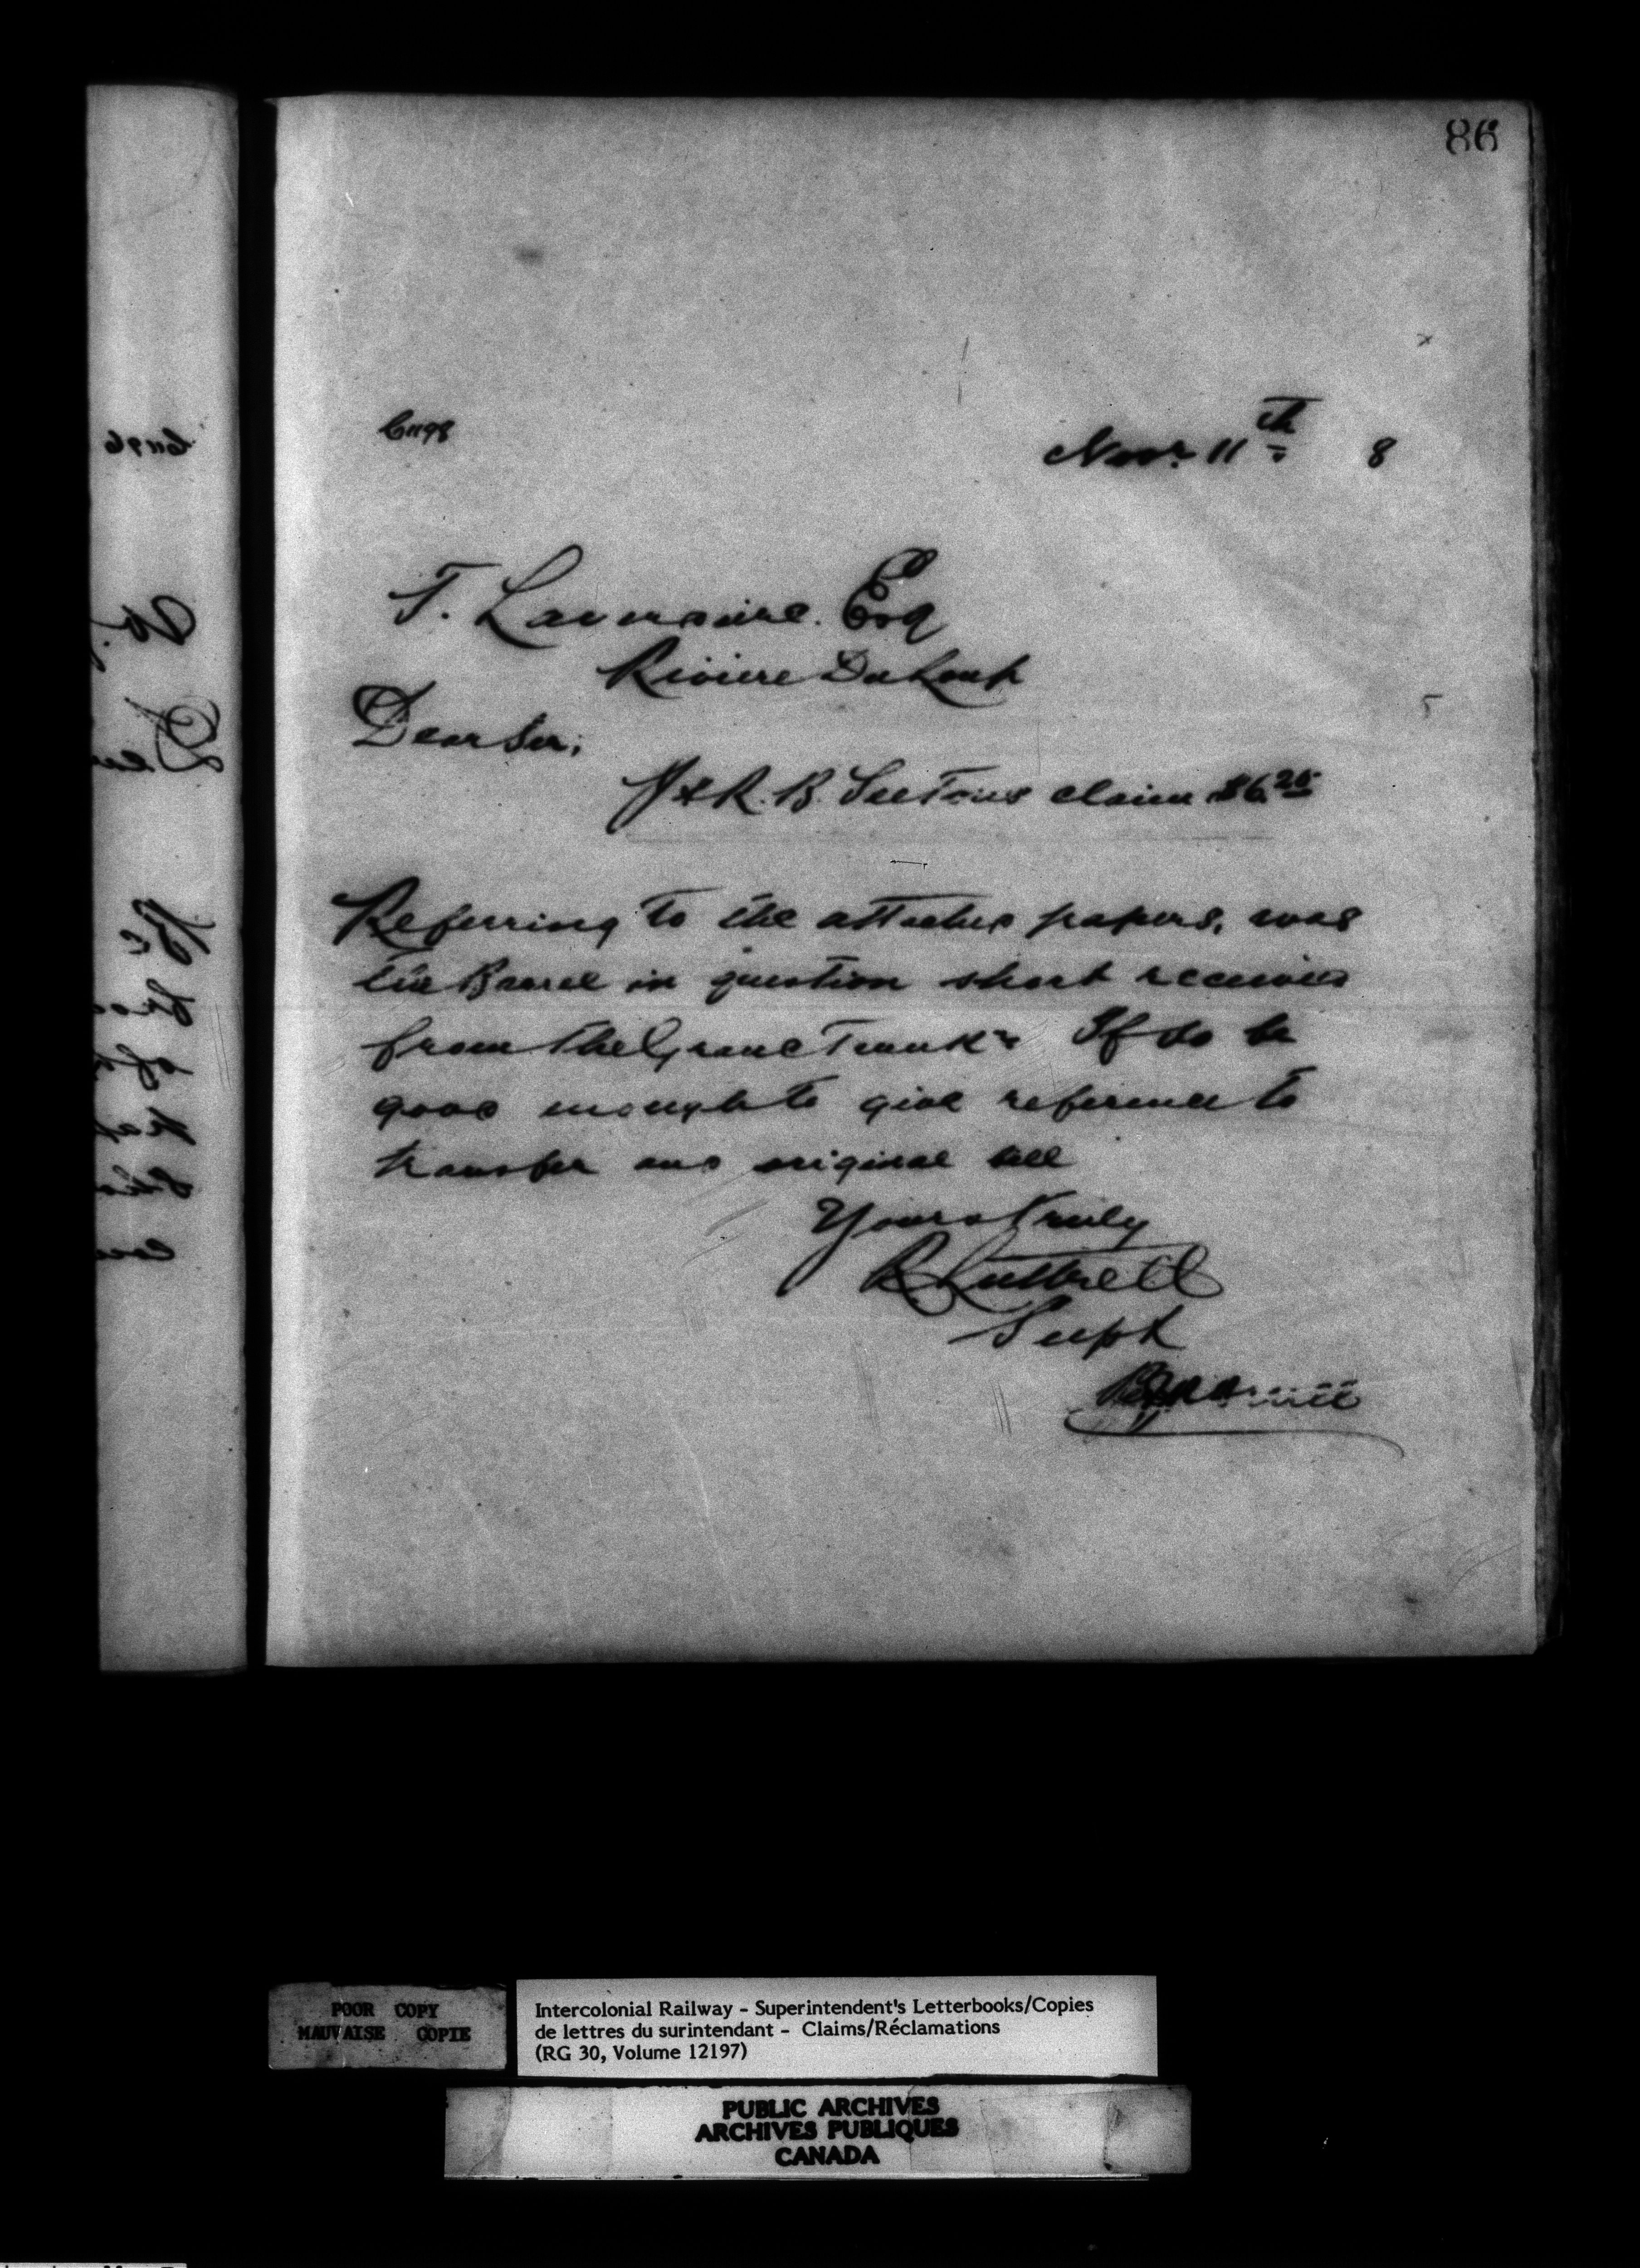 86
C1198
Novr 11th 8
T. Laveraire. Esq
Riviere Du Loup
Dear Sir;
J & R. B. Seetons claim $6.25
Referring to the attached papers, was
the Barrel in question short received
from the Grand Trunk? If so be
good enough to give reference to
transfer and original bill
Yours truly
R Luttrell
Supt
POOR COPY
MAUVAISE COPIE
Intercolonial Railway - Superintendent's Letterbooks/Copies
de lettres du surintendant - Claims/Réclamations
(RG 30, Volume 12197)
PUBLIC ARCHIVES
ARCHIVES PUBLIQUES
CANADA